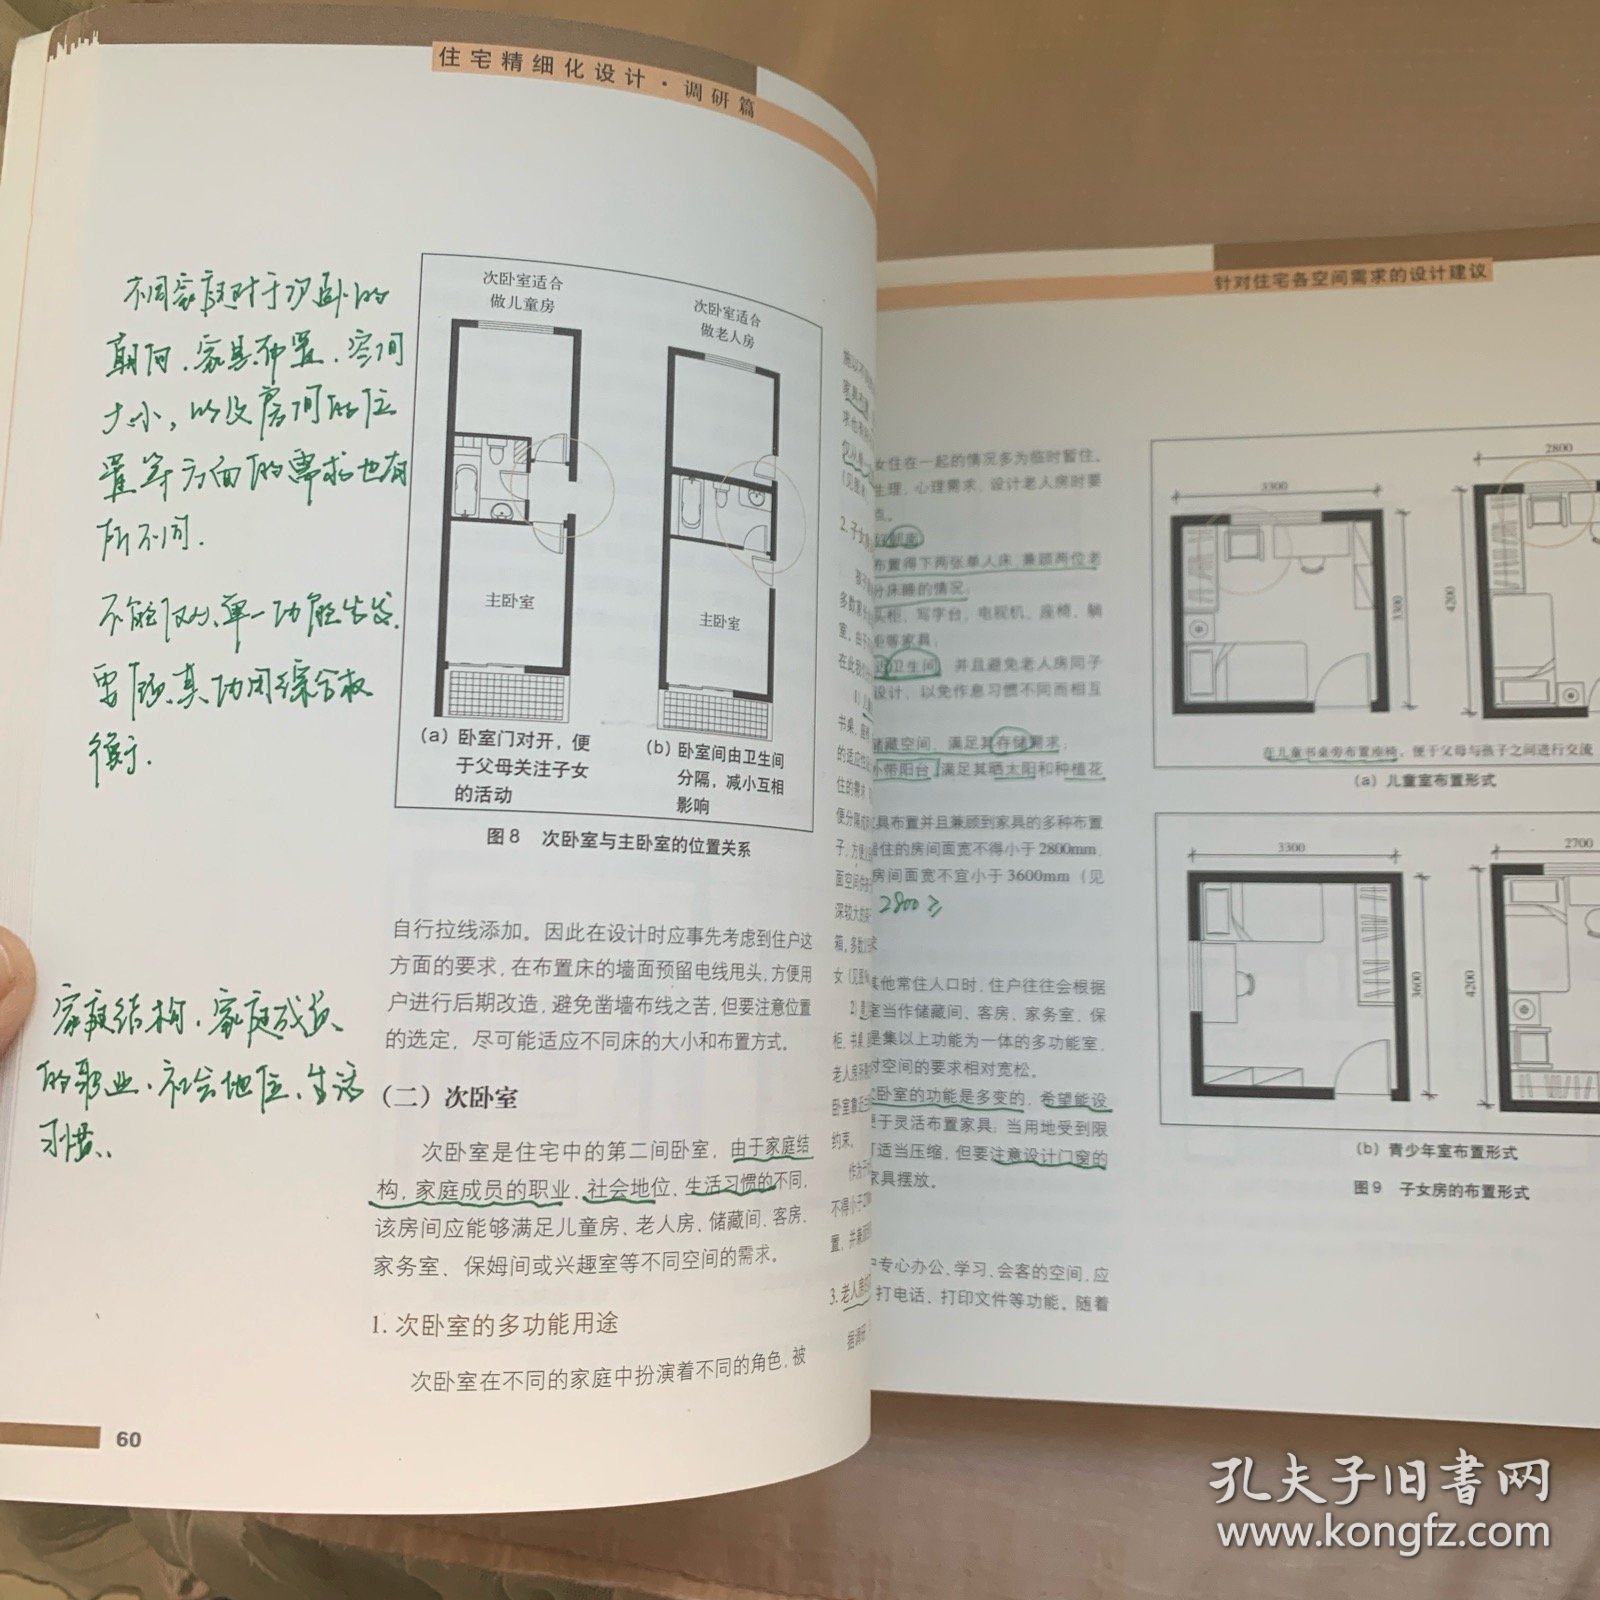 住宅精细化设计·调研篇
不同家庭对于次卧的
朝向、家具布置、空间
大小，以及房间的位
置等方面的需求也有
所不同.
不能仅从单一功能出发.
要
综合权
衡.
家庭结构、家庭成员
的职业、社会地位、生活
习惯..
次卧室适合
做儿童房
次卧室适合
做老人房
主卧室
主卧室
(a) 卧室门对开，便
于父母关注子女
的活动
(b) 卧室间由卫生间
分隔，减小互相
影响
图8 次卧室与主卧室的位置关系
自行拉线添加。因此在设计时应事先考虑到住户这
方面的要求，在布置床的墙面预留电线甩头，方便用
户进行后期改造，避免凿墙布线之苦，但要注意位置
的选定，尽可能适应不同床的大小和布置方式。
（二）次卧室
次卧室是住宅中的第二间卧室，由于家庭结
构，家庭成员的职业、社会地位、生活习惯的不同，
该房间应能够满足儿童房、老人房、储藏间、客房、
家务室、保姆间或兴趣室等不同空间的需求。
1. 次卧室的多功能用途
次卧室在不同的家庭中扮演着不同的角色，被
60
针对住宅各空间需求的设计建议
女住在一起的情况多为临时暂住。
生理，心理需求，设计老人房时要
布置得下两张单人床，兼顾两位老
分床睡的情况；
头柜、写字台、电视机、座椅、躺
柜等家具；
近卫生间，并且避免老人房同子
设计，以免作息习惯不同而相互
储藏空间，满足其存储需求；
小带阳台，满足其晒太阳和种植花
具布置并且兼顾到家具的多种布置
居住的房间面宽不得小于2800mm，
房间面宽不宜小于3600mm（见
2800≥
其他常住人口时，住户往往会根据
室当作储藏间、客房、家务室、保
是集以上功能为一体的多功能室，
对空间的要求相对宽松。
次卧室的功能是多变的，希望能设
便于灵活布置家具；当用地受到限
可适当压缩，但要注意设计门窗的
家具摆放。
户专心办公、学习、会客的空间，应
打电话、打印文件等功能。随着
3300
3300
2800
4200
在儿童书桌旁布置座椅，便于父母与孩子之间进行交流
(a) 儿童室布置形式
3300
3600
2700
4200
(b) 青少年室布置形式
图9 子女房的布置形式
孔夫子旧书网
www.kongfz.com